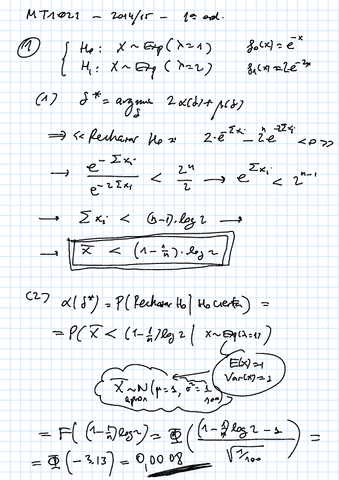 MT1021 - 2014/15 - 1ª ed.
① { H₀: X ~ Exp (λ=1)    f₀(x) = e^{-x}
H₁: X ~ Exp (λ=2)    f₁(x) = 2e^{-2x}
(1) δ* = argmin_δ 2α(δ) + β(δ)
⇒ << Rechazar H₀ 2·e^{-Σxᵢ} - 2ⁿe^{-2Σxᵢ} < 0 >>
→ e^{-Σxᵢ} / e^{-2Σxᵢ} < 2ⁿ/2 → e^{Σxᵢ} < 2^{n-1}
→ Σxᵢ < (n-1)·log 2 →
→ X̄ < (1-1/n)·log 2
(2) α(δ*) = P(Rechazar H₀ | H₀ cierta) =
= P(X̄ < (1-1/n) log 2 | X~Exp(λ=1))
E(X)=1
Var(X)=1
X̄ ~ N(μ=1, σ²=1/100)
aprox
= F((1-1/n) log 2) = Φ( ((1-1/n) log 2 - 1) / √(1/100) ) =
= Φ(-3.13) = 0,0008